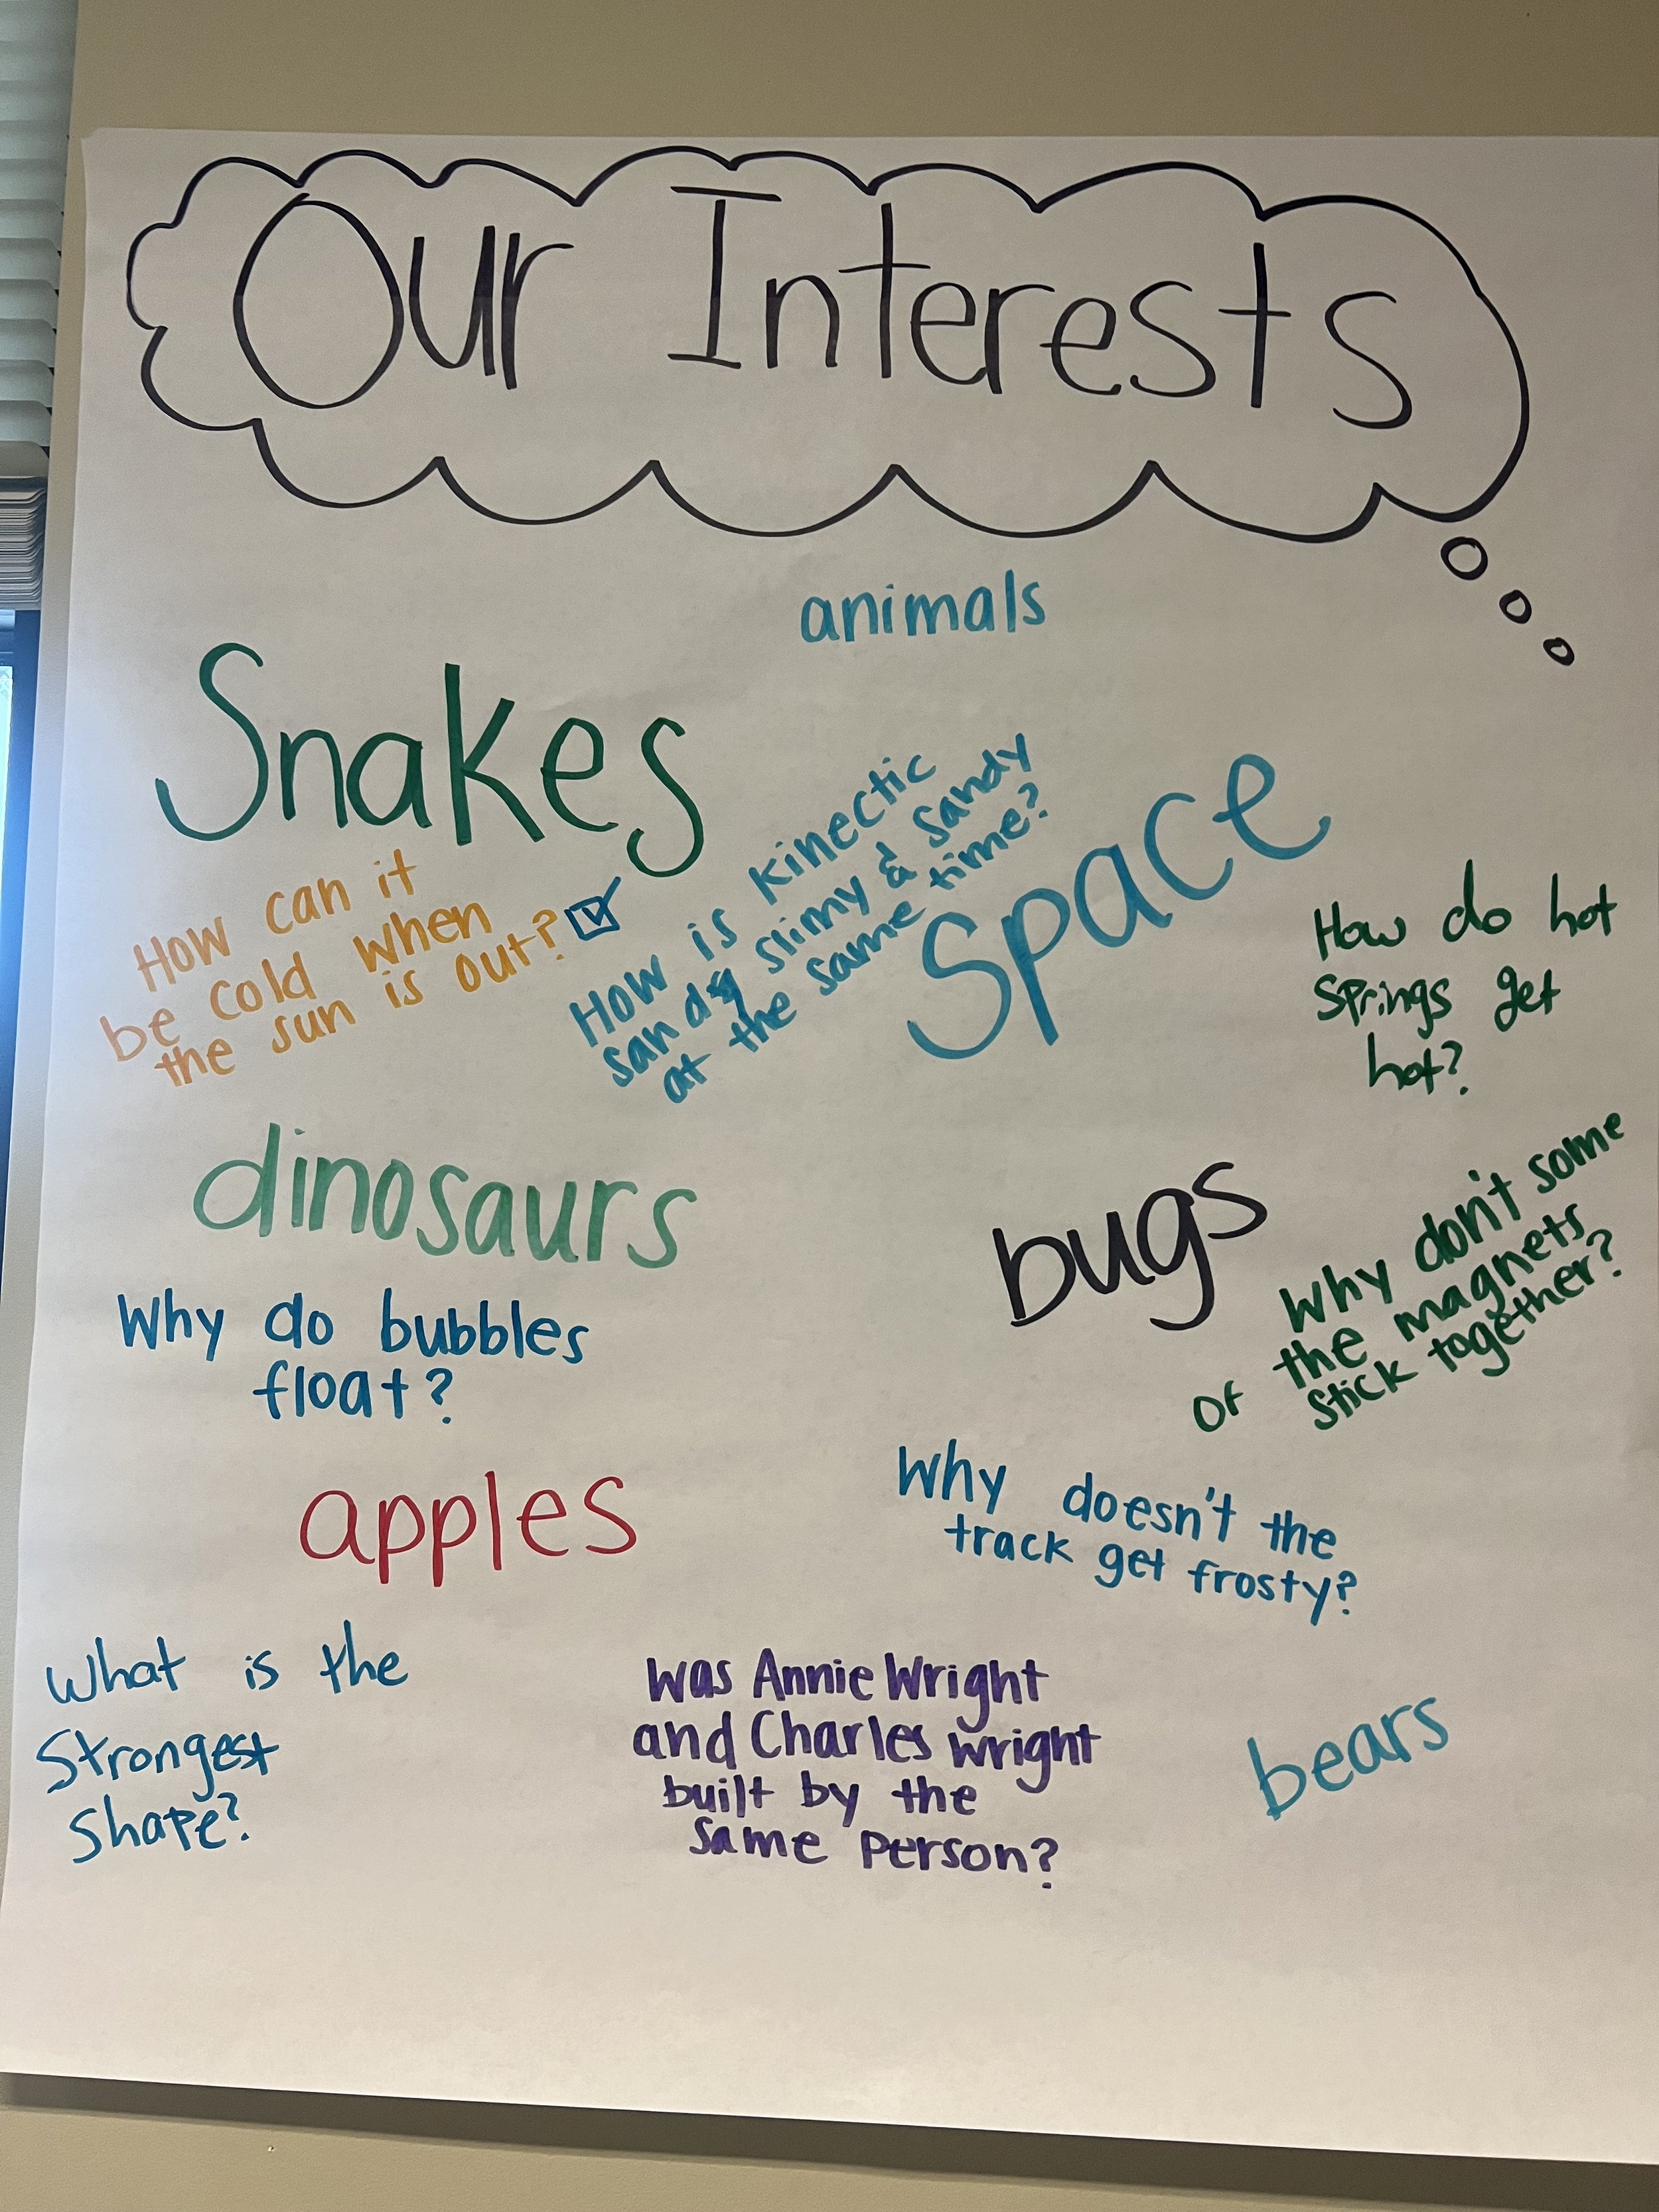 Our Interests
animals
Snakes
How can it
be cold when
the sun is out?
How is kinectic
sand slimy & sandy
at the same time?
Space
How do hot
springs get
hot?
dinosaurs
bugs
Why don't some
of the magnets
stick together?
Why do bubbles
float?
apples
Why doesn't the
track get frosty?
What is the
strongest
shape?
Was Annie Wright
and Charles Wright
built by the
same person?
bears